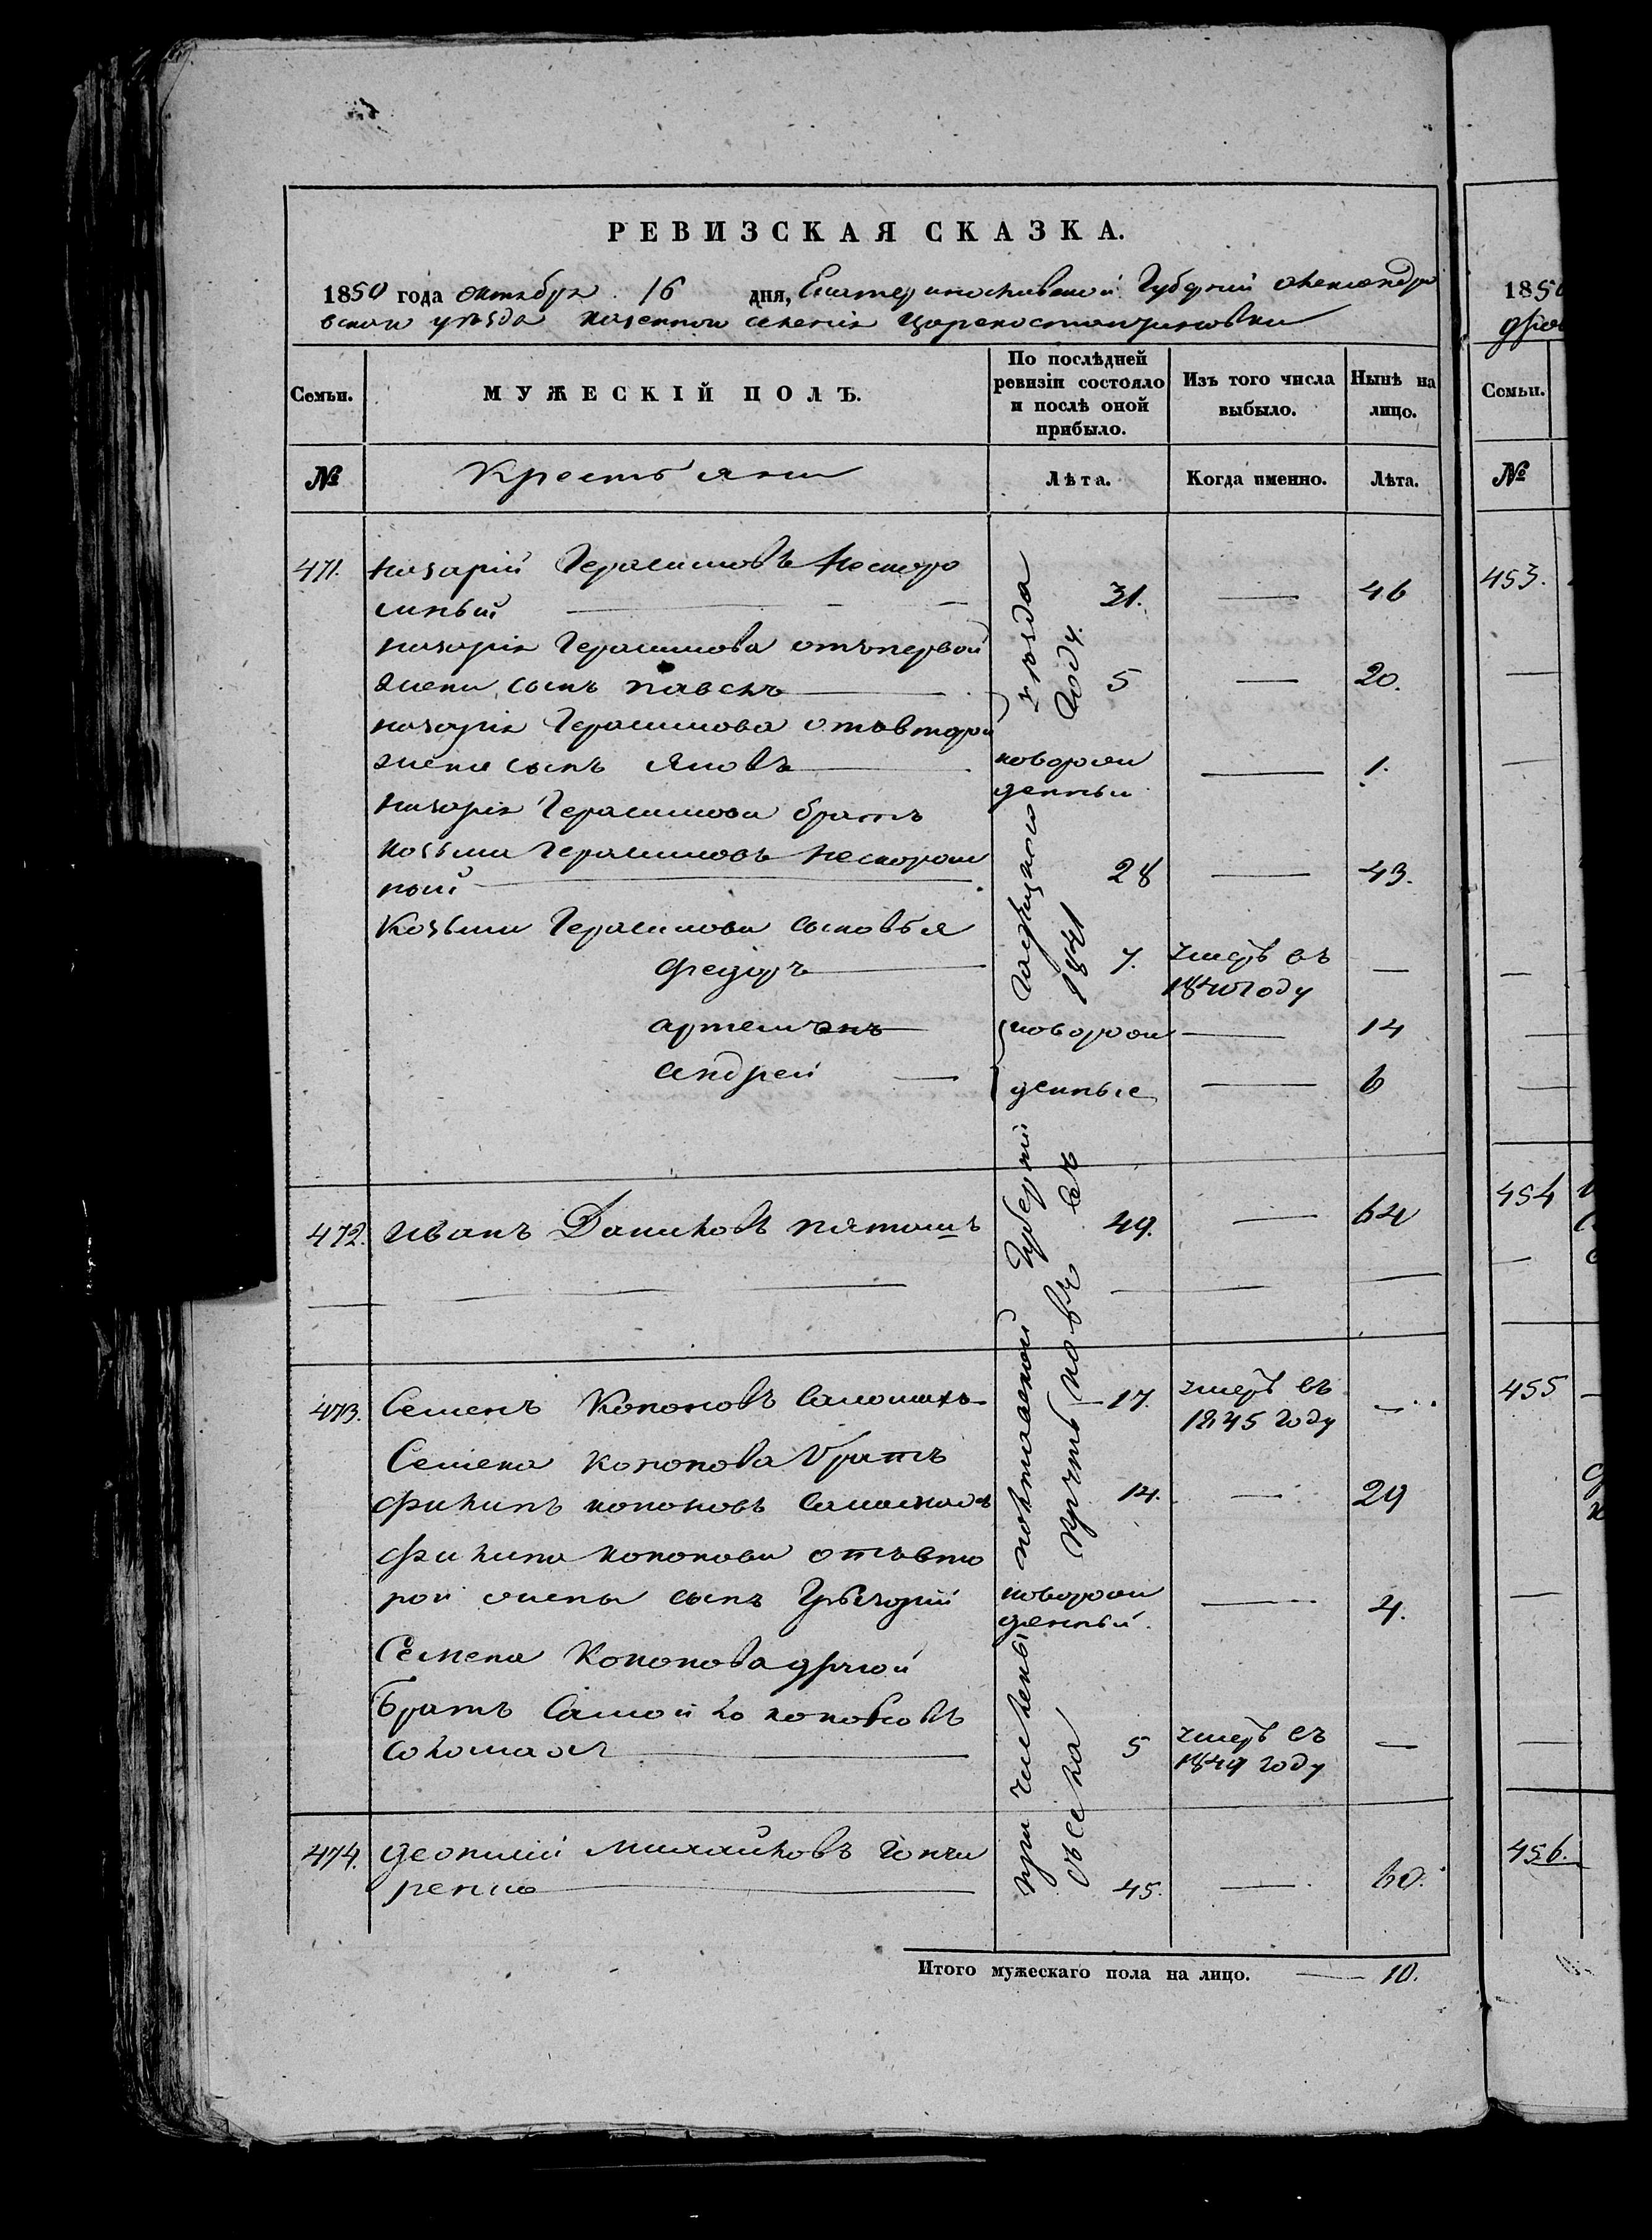 РЕВИЗСКАЯ СКАЗКА.
1850 года октября 16 дня, Екатеринославской Губернии Александро
вскаго уѣзда казеннаго селенія Цареконстантиновки
Семьи. МУЖЕСКІЙ ПОЛЪ. По послѣдней ревизіи состояло и послѣ оной прибыло. Изъ того числа выбыло. Нынѣ на лицо.
№ Крестьяне Лѣта. Когда именно. Лѣта.
471. Назарій Герасимовъ Нескоро
мный 31. — 46
Назарія Герасимова отъ первой
жены сынъ Павелъ 5 — 20.
Назарія Герасимова отъ второй
жены сынъ Яковъ новорож
денный — 1.
Назарія Герасимова братъ
Козьма Герасимовъ Нескором
ный 28 — 43.
Козьмы Герасимова сыновья
Федоръ 7. умеръ въ
1840 году —
новорож — 14
Андрей денные — 6
472. Иванъ Даниловъ 49. — 64
473. Семенъ Кононовъ 17. умеръ въ
1845 году —
Семена Кононова братъ
Филипъ Кононовъ 14. — 29
Филипа Кононова отъ вто
рой жены сынъ Григорій новорож
денный. — 4.
Семена Кононова другой
братъ Самойло Кононовъ
5 умеръ въ
1849 году —
474. Леонтій Михайловъ Гонча
ренко 45. — 60.
причислены Полтавской Губерніи Гадяцкаго уѣзда
въ 1841 году.
Итого мужескаго пола на лицо. — 10.
1850
Семьи.
№
453.
454
455
456.